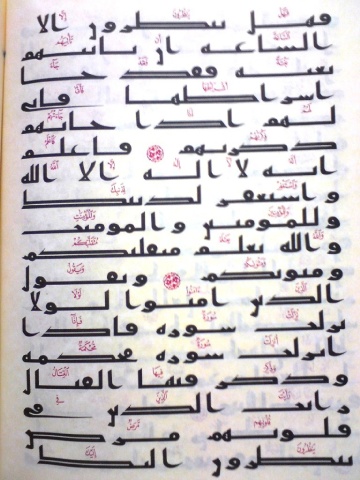 فهل ينظرون الا
الساعه ان تاتيهم
بغته فقد جا
اشراطها فانى
لهم اذا جاتهم
ذكريهم فاعلم
انه لا اله الا الله
واستغفر لذنبك
وللمومنين والمومنت
والله يعلم متقلبكم
ومثويكم ويقول
الذين امنوا لولا
نزلت سوره فاذا
انزلت سوره محكمه
وذكر فيها القتال
رايت الذين فى
قلوبهم مرض
ينظرون اليك